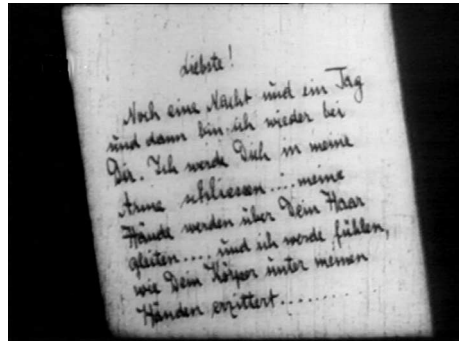 Liebste!
Noch eine Nacht und ein Tag
und dann bin ich wieder bei
Dir. Ich werde Dich in meine
Arme schliessen.... meine
Hände werden über Dein Haar
gleiten.... und ich werde fühlen,
wie Dein Körper unter meinen
Händen erzittert.........